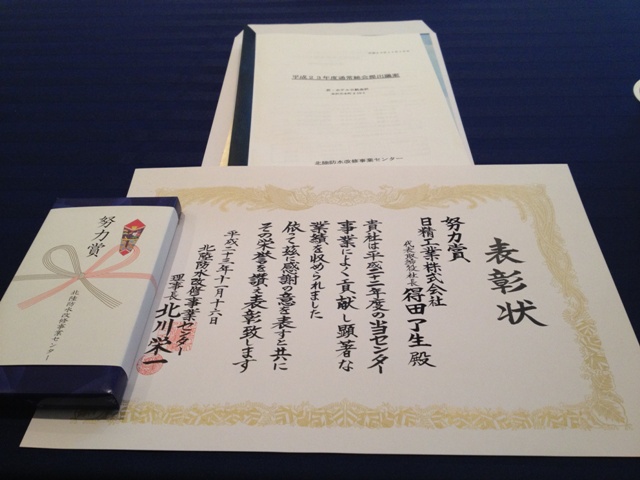 平成２３年度通常総会提出議案
北陸防水改修事業センター
表彰状
努力賞
日精工業株式会社
代表取締役社長 得田了生 殿
貴社は平成二十二年度の当センター
事業によく貢献し顕著な
業績を収められました
依て茲に感謝の意を表すと共に
その栄誉を讃え表彰致します
平成二十三年十一月十六日
北陸防水改修事業センター
理事長 北川栄一
努力賞
北陸防水改修事業センター